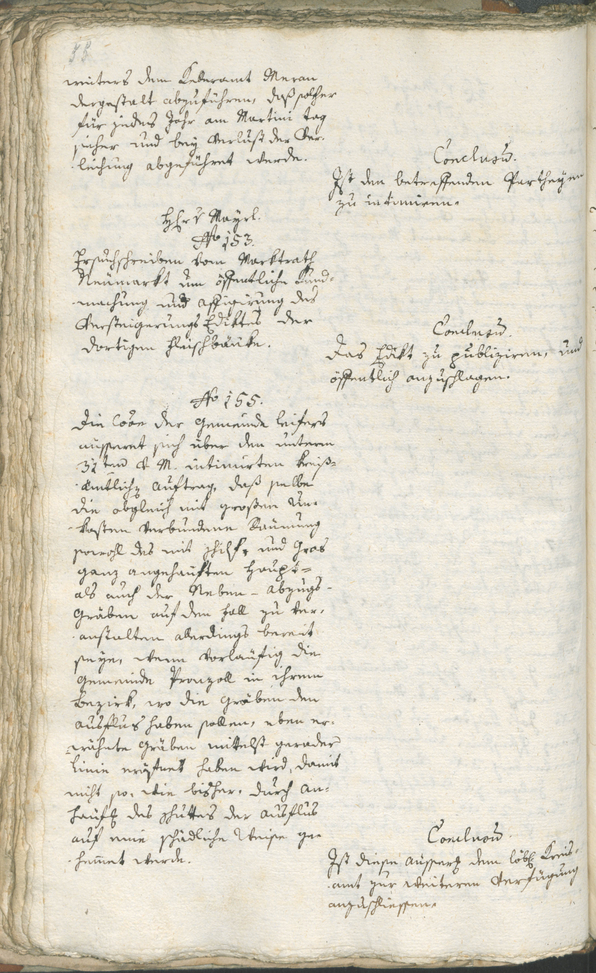 weiters dem Kelleramt Meran
dergestalt abzuführen, daß solcher
für jedes Jahr am Martini tag
sicher und bey Verlust der Ver-
leihung abgeführet werde.
Conclusum.
Ist den betreffenden Partheyen
zu intimiren.
Hr. v. Mayrl.
No 153.
Ersuchschreiben vom Marktrath
Neumarkt um öffentliche Kund-
machung und affigirung des
Versteigerungs Ediktes der
dortigen Fleischbänke.
Conclusum.
Das Edikt zu publiziren, und
öffentlich anzuschlagen.
No 155.
Die Löbe der Gemeinde Leifers
äussert sich über den unterm
31ten v. M. intimirten kreis-
amtliche Auftrag, daß selbe
die obgleich mit großen Un-
kosten verbundene Räumung
sowohl des mit Schilf, und Gras
ganz angehäuften Haupt-
als auch der Neben- Abzugs-
Gräben auf den Fall zu ver-
anstalten allerdings bereit
seye, wenn vorläufig die
Gemeinde Pranzoll in ihrem
Bezirk, wo die Gräben den
Ausfluß haben sollen, eben er-
wähnte Gräben mittelst gerader
Linie eröfnet haben wird, damit
nicht so, wie bisher, durch an-
häuff des Schuttes der Ausfluß
auf eine schädliche Weise ge-
hemmet werde.
Conclusum.
Ist diese äusserg dem löbl. Kreis-
amt zur weiteren Verfügung
anzuschliessen.